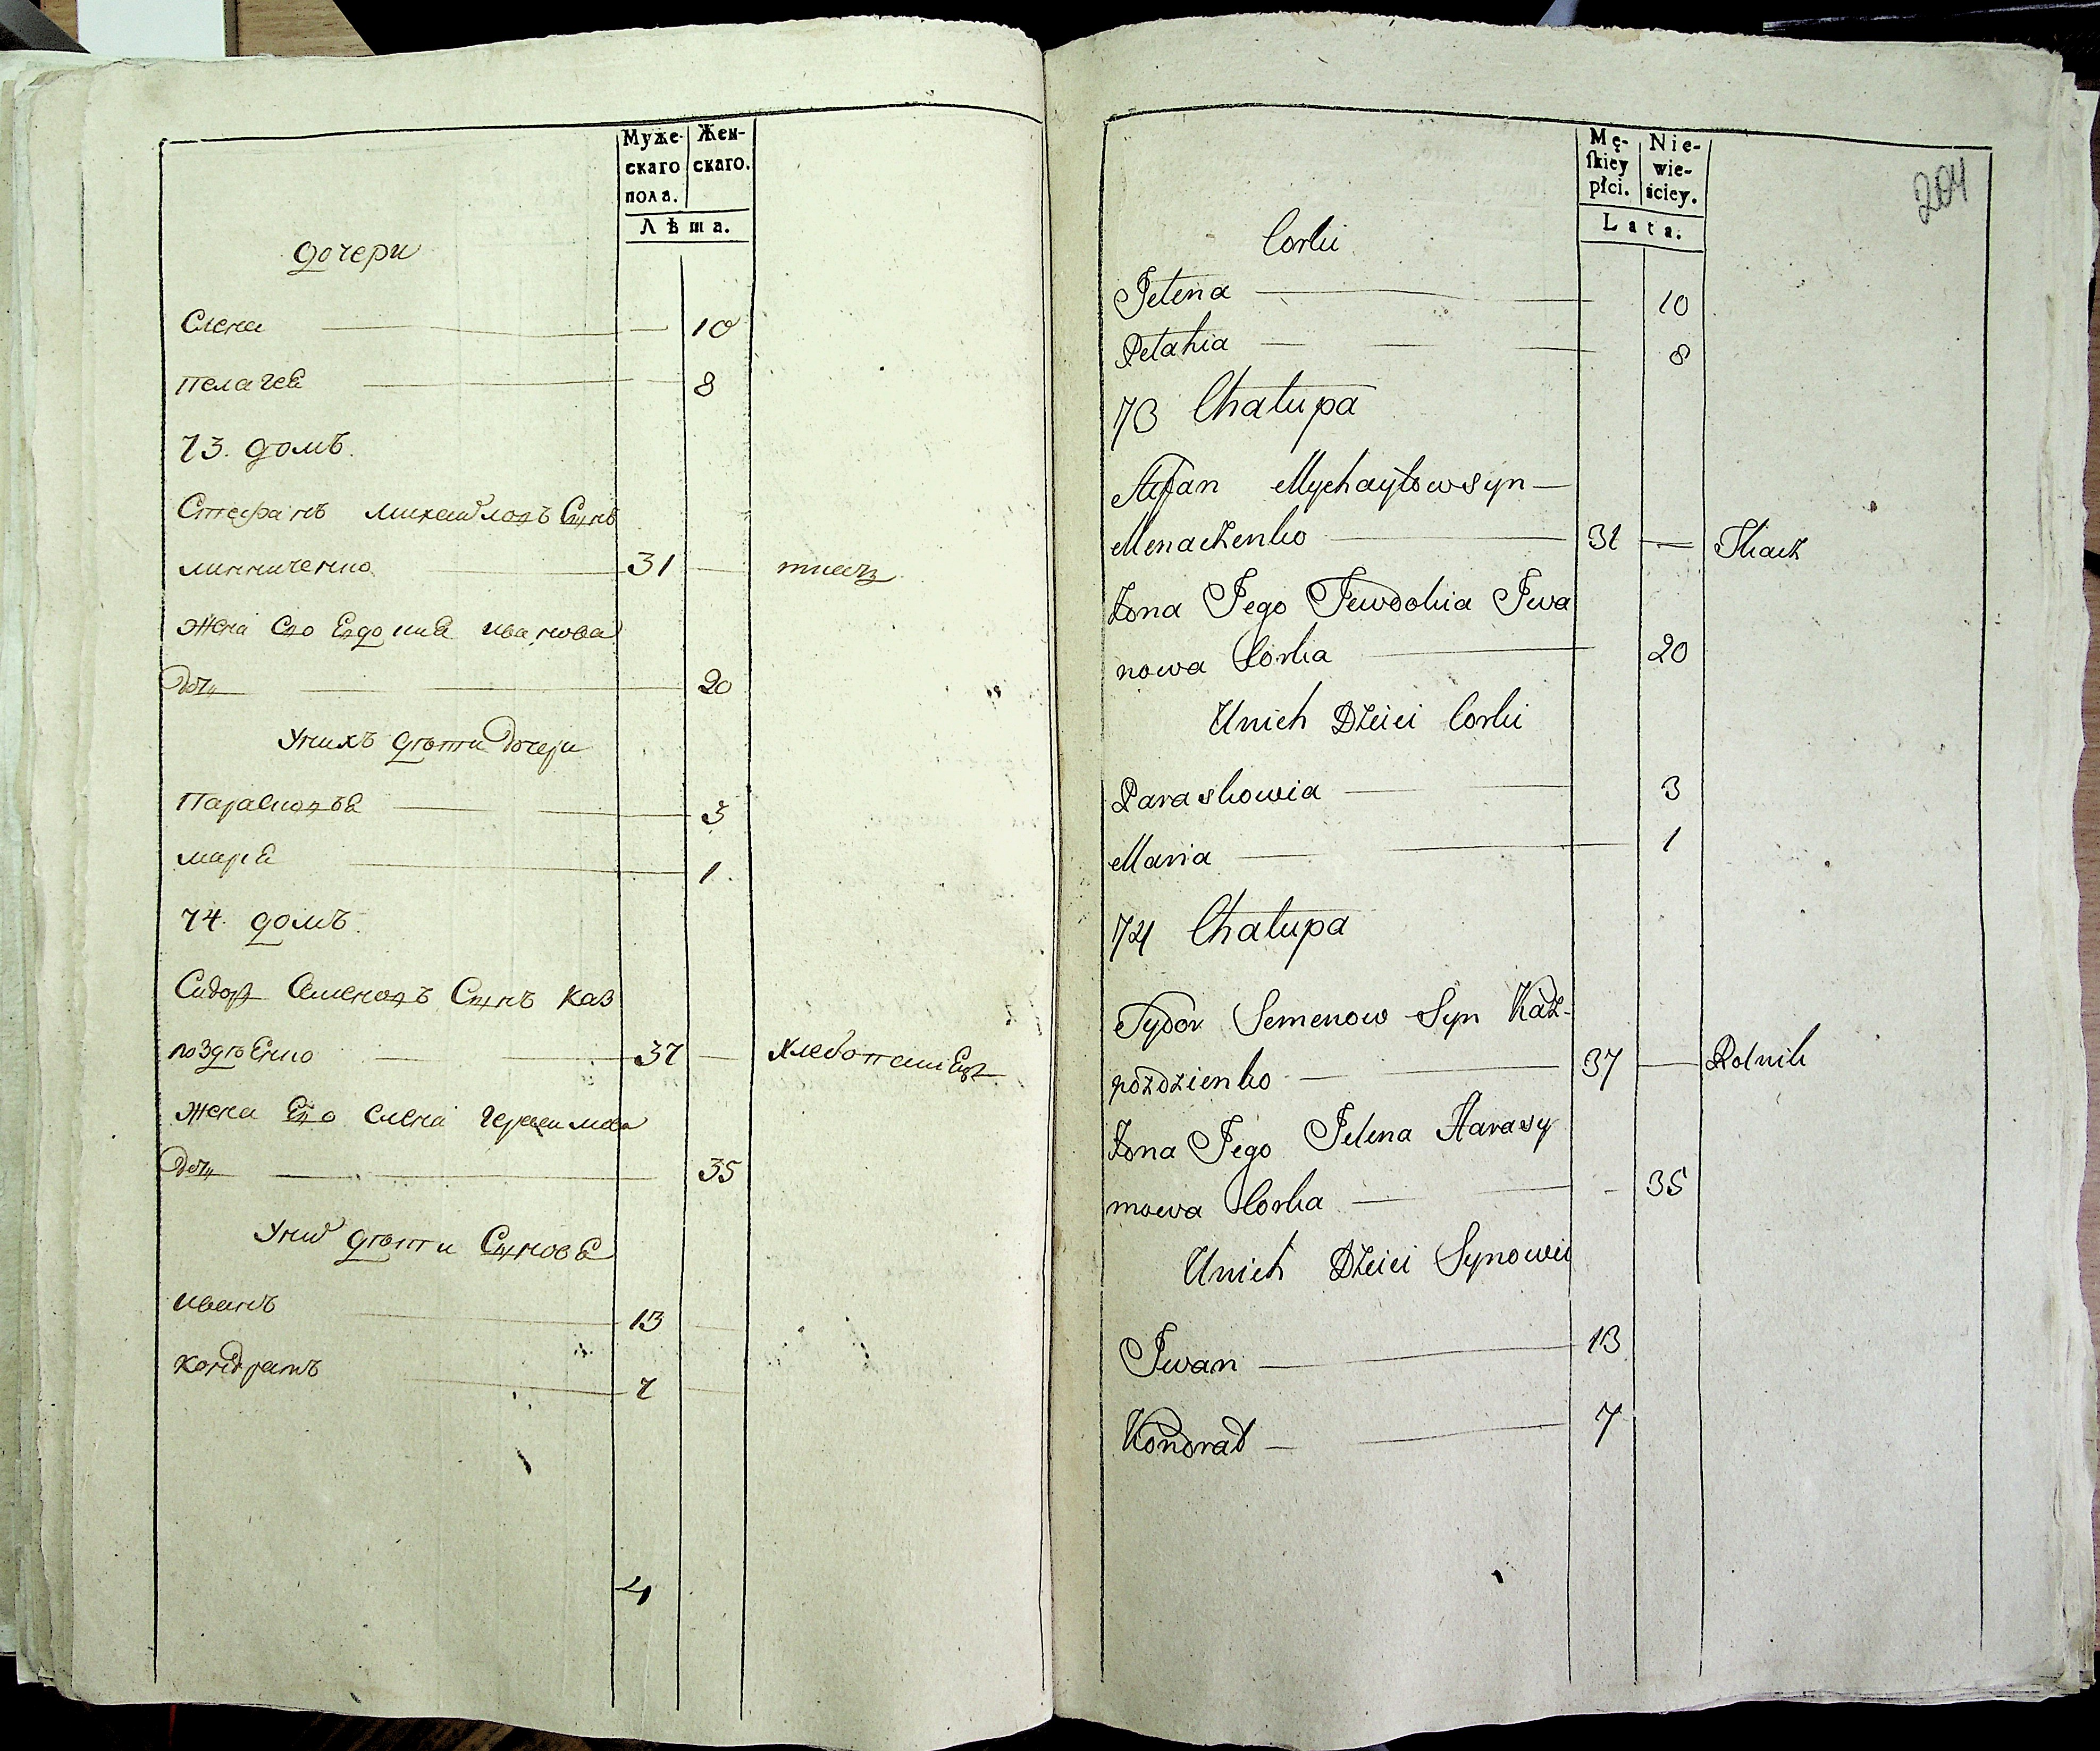 Муже-
скаго
пола.
Жен-
скаго.
Лѣта.
дочери
Елена 10
пелагея 8
73. домъ.
Стефанъ михайловъ Сынъ
минниченко 31 ткачъ
жена Его Евдокия иванова
дочь 20
У нихъ дѣти дочери
Парасковья 3
марья 1
74. домъ.
Сидоръ Семеновъ Сынъ каз
поздѣенко 37 хлебопашецъ
жена Его елена герасимова
дочь 35
У них дѣти Сыновья
иванъ 13
кондратъ 7
4
204
Mę-
skiey
płci.
Nie-
wie-
ściey.
Lata.
Corki
Jelena 10
Pelahia 8
73 Chałupa
Stefan Mychayłow syn
Menaczenko 31 Tkacz
Żona Jego Jewdokia Iwa
nowa Corka 20
U nich Dzieci Corki
Paraskowia 3
Maria 1
74 Chałupa
Sydor Semenow Syn Kaz-
pozdzienko 37 Rolnik
Żona Jego Jelena Harasy
mowa Corka 35
U nich Dzieci Synowie
Iwan 13
Kondrad 7